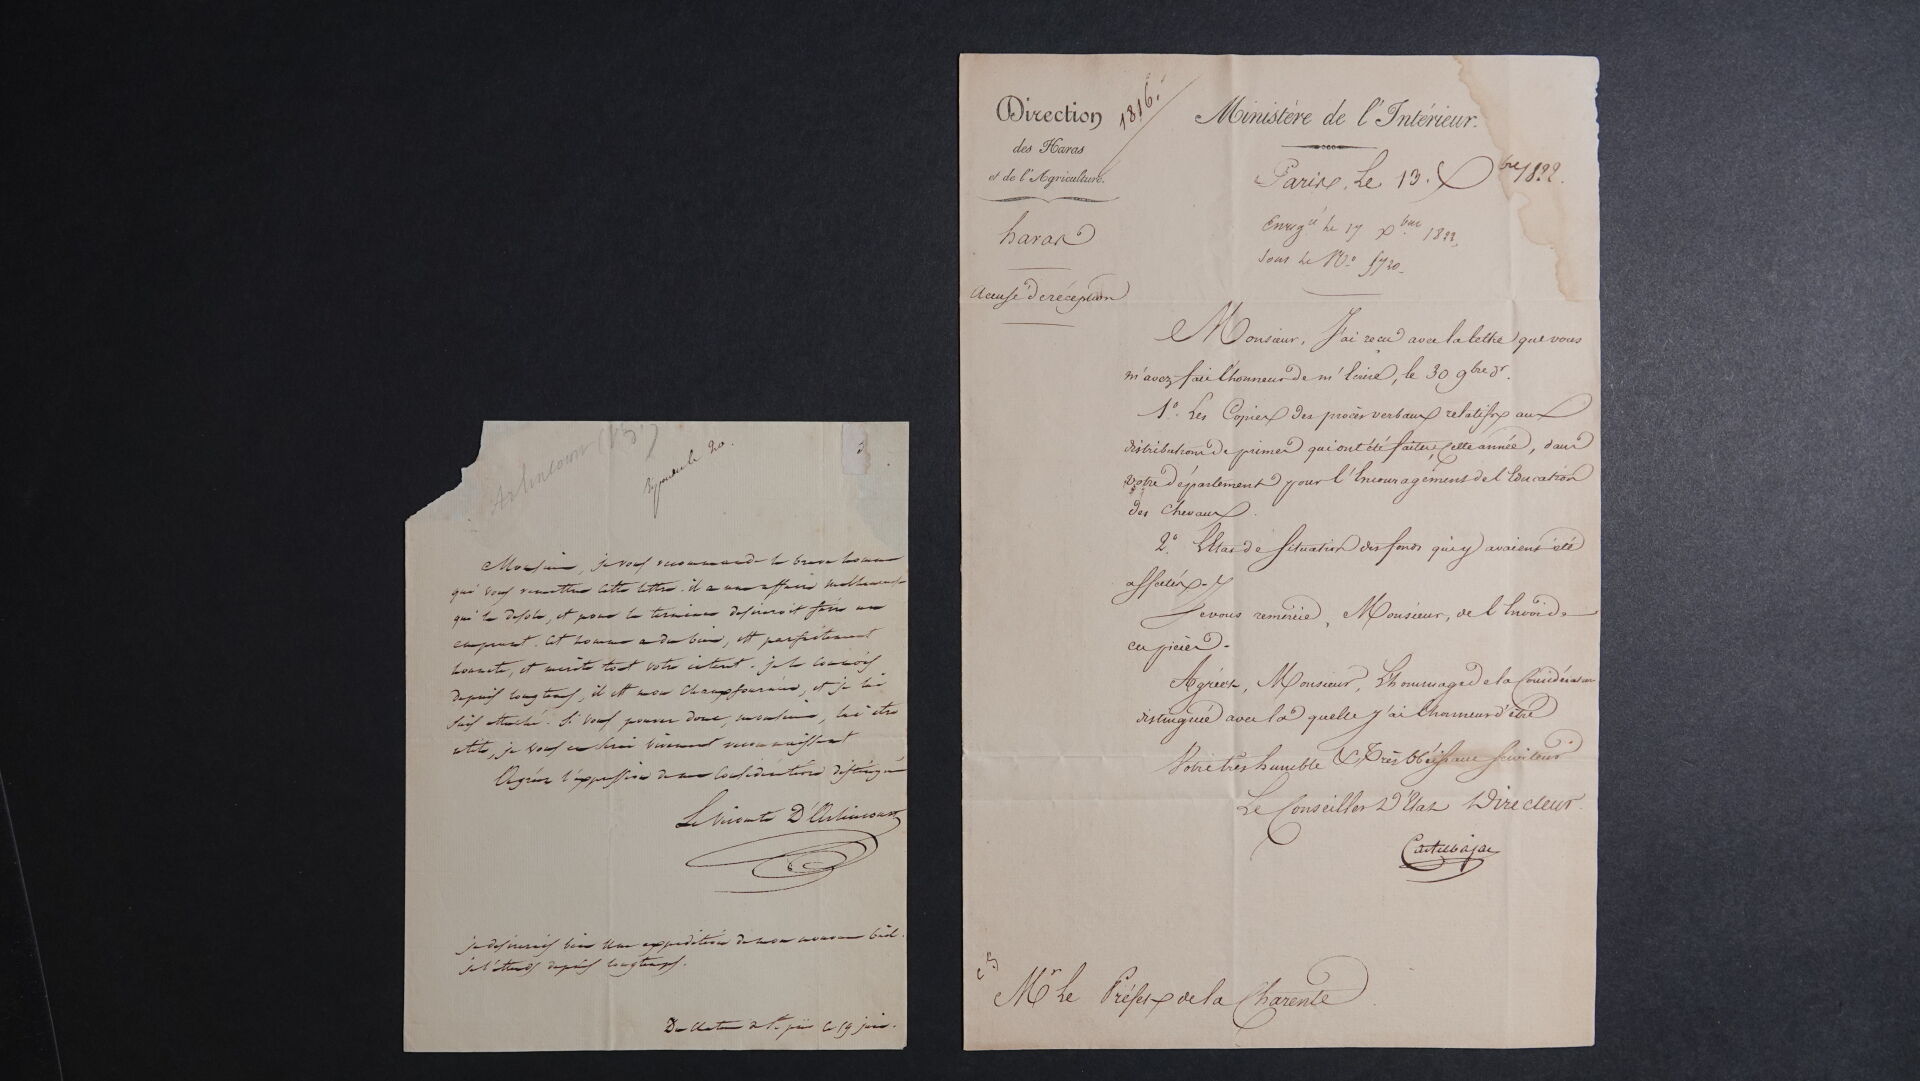 Arlincourt (Vte d')
répondu le 20.
Monsieur, je vous recommande le brave homme
qui vous remettra cette lettre. il a une affaire malheureuse
qui le désole, et pour la terminer desireroit faire un
emprunt. Cet homme a du bien, est parfaitement
honnete, et mérite tout votre interet. je le connois
depuis longtems, il est mon chaufournier, et je lui
suis attaché. Si vous pouvez donc, monsieur, lui etre
utile, je vous en serai vivement reconnoissant
Agréez l'expression de ma considération distinguée
Le Vicomte D'Arlincourt
je desirerois bien une expédition de mon nouveau bail.
je l'attends depuis longtemps.
Du chateau de St. paër ce 19 juin.
Direction
des Haras
et de l'Agriculture.
1816.
haras
Accusé de réception
Ministère de l'Intérieur.
Paris, Le 13. Xbre 1822.
Enregé le 17 Xbre 1822,
sous le No. 5720
Monsieur, J'ai reçu avec la lettre que vous
m'avez fait l'honneur de m'écrire, le 30 9bre dr.
1o. Les Copies des procès verbaux relatifs aux
distributions de primes qui ont été faites, cette année, dans
votre département pour l'Encouragement de l'Education
des chevaux.
2o. L'Etat de situation des fonds qui y avaient été
affectés.
Je vous remercie, Monsieur, de l'Envoi de
ces pièces.
Agréez, Monsieur, l'hommage de la Considération
distinguée avec la quelle j'ai l'honneur d'être
Votre très humble & très Obéissant serviteur
Le Conseiller d'Etat Directeur.
Castelbajac
Mr Le Préfet de la Charente